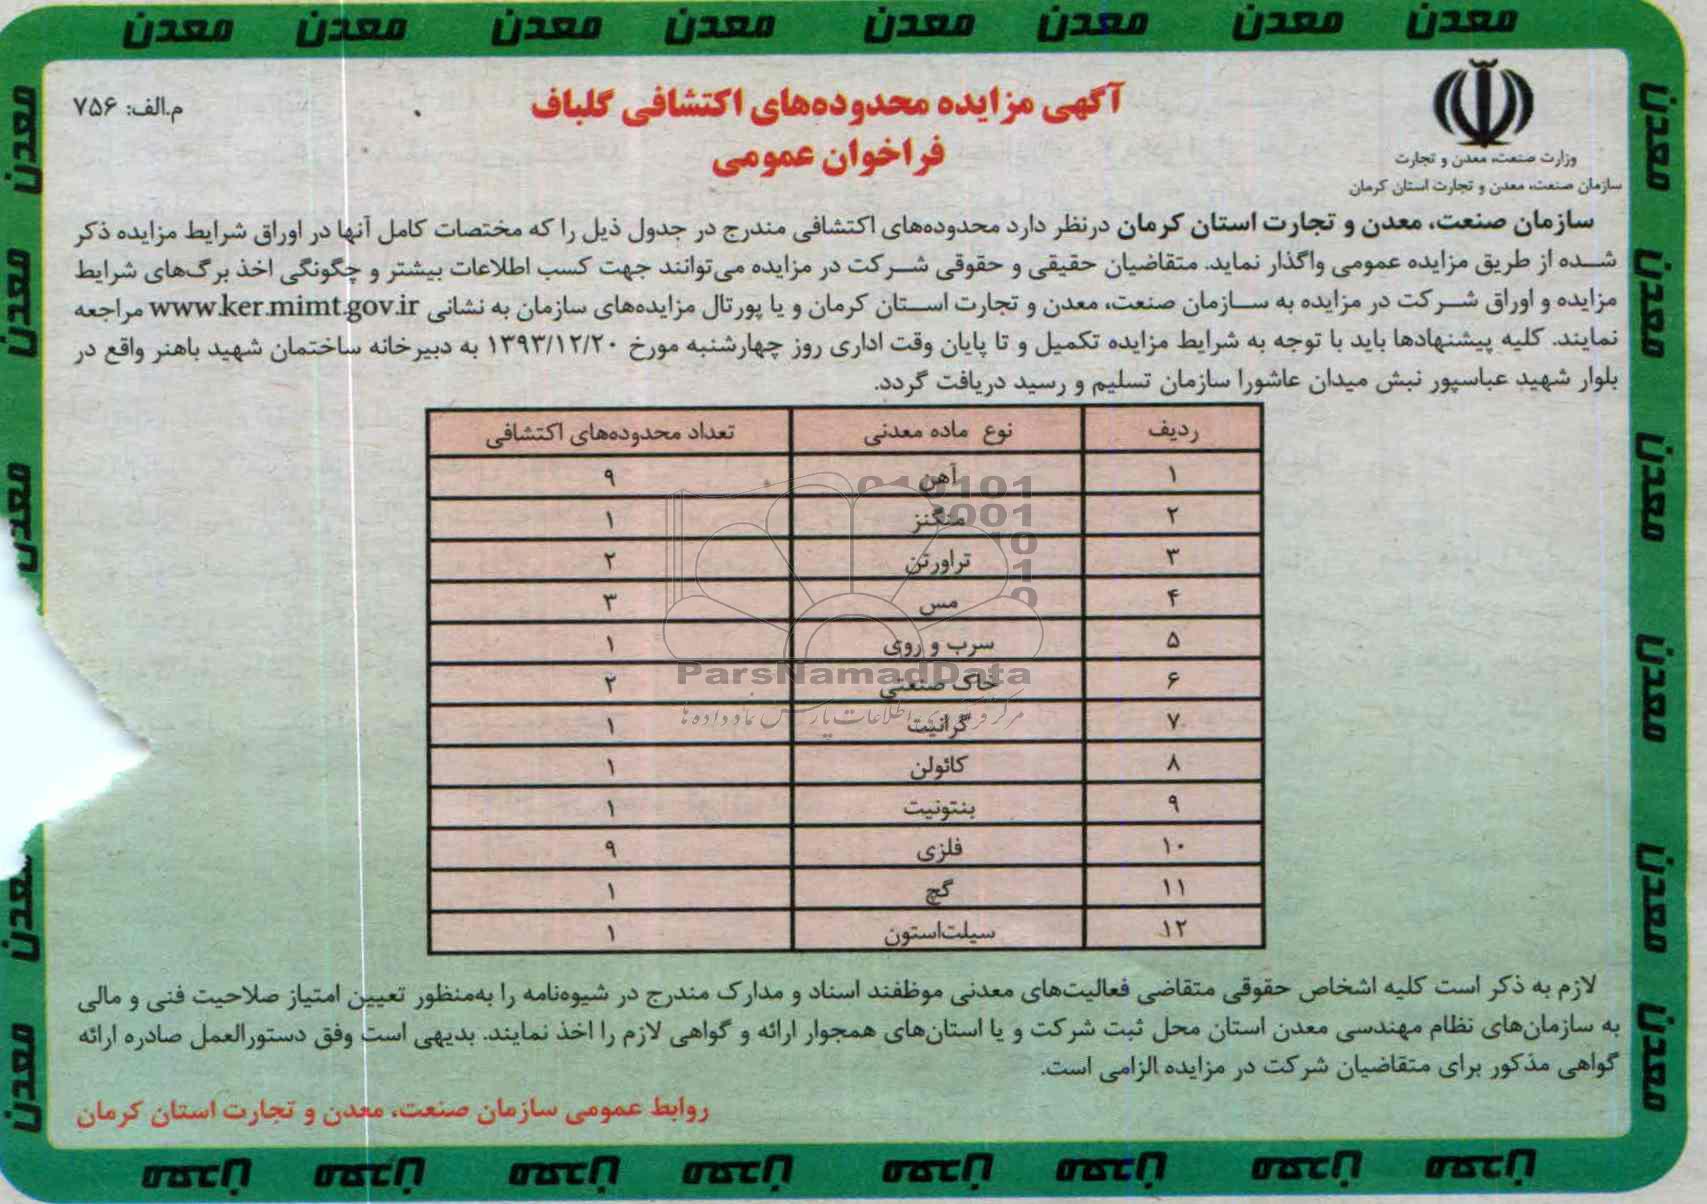 معدن معدن معدن معدن معدن معدن معدن معدن
وزارت صنعت، معدن و تجارت
سازمان صنعت، معدن و تجارت استان کرمان
آگهی مزایده محدوده‌های اکتشافی گلباف
فراخوان عمومی
م.الف: ۷۵۶
سازمان صنعت، معدن و تجارت استان کرمان درنظر دارد محدوده‌های اکتشافی مندرج در جدول ذیل را که مختصات کامل آنها در اوراق شرایط مزایده ذکر
شده از طریق مزایده عمومی واگذار نماید. متقاضیان حقیقی و حقوقی شرکت در مزایده می‌توانند جهت کسب اطلاعات بیشتر و چگونگی اخذ برگ‌های شرایط
مزایده و اوراق شرکت در مزایده به سازمان صنعت، معدن و تجارت استان کرمان و یا پورتال مزایده‌های سازمان به نشانی www.ker.mimt.gov.ir مراجعه
نمایند. کلیه پیشنهادها باید با توجه به شرایط مزایده تکمیل و تا پایان وقت اداری روز چهارشنبه مورخ ۱۳۹۳/۱۲/۲۰ به دبیرخانه ساختمان شهید باهنر واقع در
بلوار شهید عباسپور نبش میدان عاشورا سازمان تسلیم و رسید دریافت گردد.
ردیف نوع ماده معدنی تعداد محدوده‌های اکتشافی
۱ آهن ۹
۲ منگنز ۱
۳ تراورتن ۲
۴ مس ۳
۵ سرب و روی ۱
۶ خاک صنعتی ۲
۷ گرانیت ۱
۸ کائولن ۱
۹ بنتونیت ۱
۱۰ فلزی ۹
۱۱ گچ ۱
۱۲ سیلت‌استون ۱
ParsNamadData
لازم به ذکر است کلیه اشخاص حقوقی متقاضی فعالیت‌های معدنی موظفند اسناد و مدارک مندرج در شیوه‌نامه را به‌منظور تعیین امتیاز صلاحیت فنی و مالی
به سازمان‌های نظام مهندسی معدن استان محل ثبت شرکت و یا استان‌های همجوار ارائه و گواهی لازم را اخذ نمایند. بدیهی است وفق دستورالعمل صادره ارائه
گواهی مذکور برای متقاضیان شرکت در مزایده الزامی است.
روابط عمومی سازمان صنعت، معدن و تجارت استان کرمان
معدن معدن معدن معدن معدن معدن معدن معدن